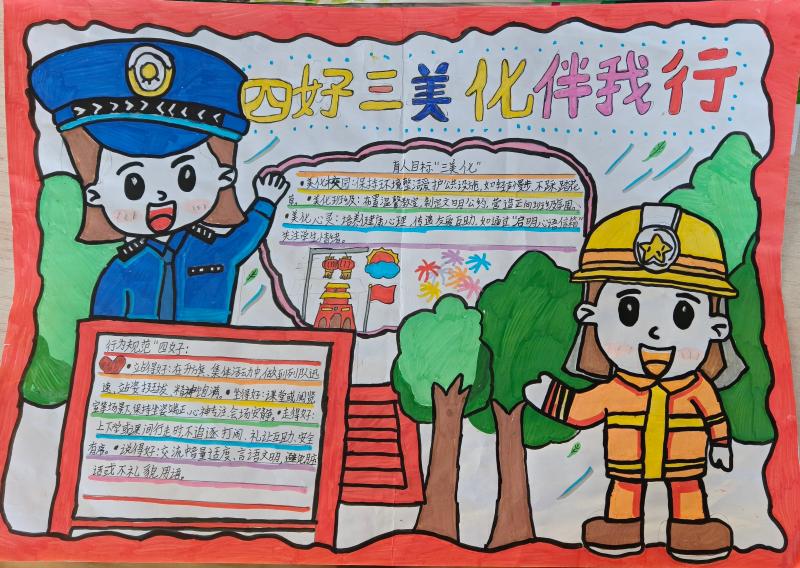 四好三美化伴我行
育人目标"三美化"
•美化校园:保持环境整洁,爱护公共设施,如轻声慢步,不踩踏花
草。•美化班级:布置温馨教室,制定文明公约,营造正向班级氛围。
•美化心灵:培养健康心理,传递友爱互助,如通过"启明心语信箱"
关注学生情绪。
行为规范"四好:
•站得好:在升旗、集体活动中做到列队迅
速、站姿挺拔、精神饱满。•坐得好:课堂或阅览
室等场景下,保持坐姿端正、心神专注、会场安静。•走得好:
上下学或课间行走时不追逐打闹、礼让互助、安全
有序。•说得好:交流中音量适度、言语文明,避免脏
话或不礼貌用语。